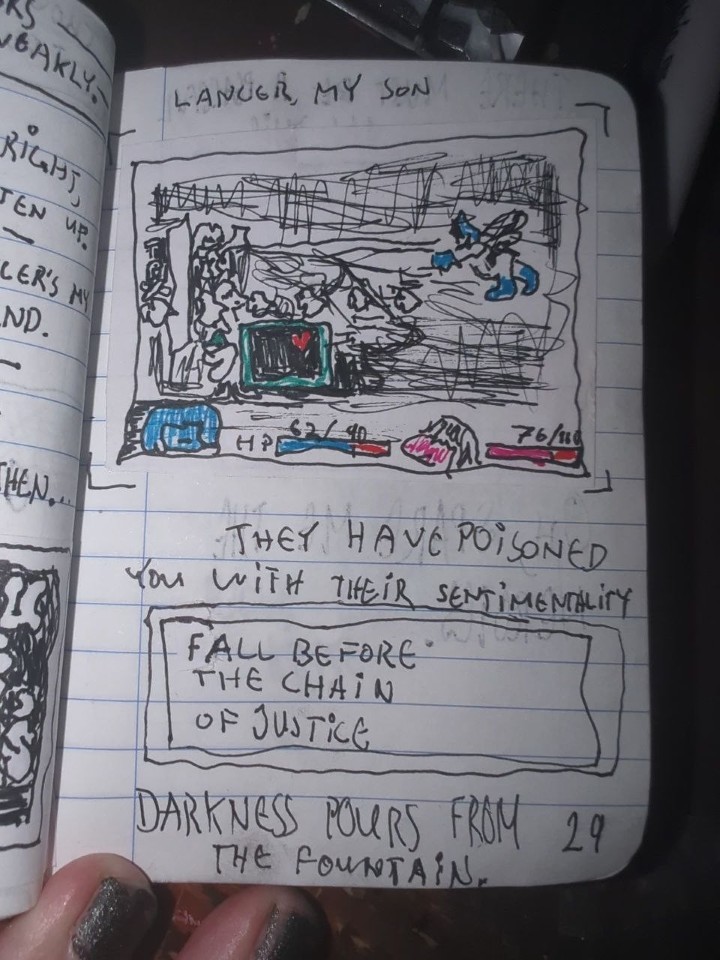 EAKLY.
RIGHT,
TEN UP.
LER'S MY
ND.
THEN...
LANCER, MY SON
HP 62/90
76/110
THEY HAVE POISONED
YOU WITH THEIR SENTIMENTALITY
FALL BEFORE
THE CHAIN
OF JUSTICE
DARKNESS POURS FROM
THE FOUNTAIN.
29